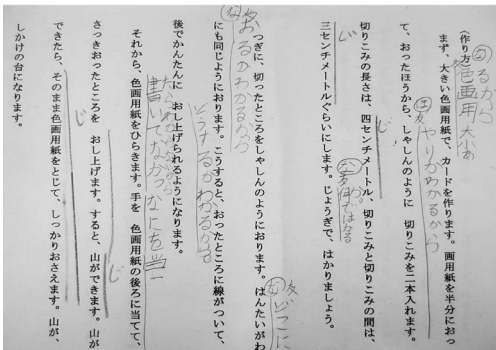 (作り方)
まず、大きい色画用紙で、カードを作ります。画用紙を半分におっ
て、おったほうから、しゃしんのように 切りこみを二本入れます。
切りこみの長さは、四センチメートル、切りこみと切りこみの間は、
三センチメートルぐらいにします。じょうぎで、はかりましょう。
つぎに、切ったところをしゃしんのようにおります。はんたいがわ
にも同じようにおります。こうすると、おったところに線がついて、
後でかんたんに おし上げられるようになります。
それから、色画用紙をひらきます。手を 色画用紙の後ろに当てて、
さっきおったところを おし上げます。すると、山ができます。山が
できたら、そのまま色画用紙をとじて、しっかりおさえます。山が、
しかけの台になります。
色画用
大小
やりかわかるから
おるのわかるから
どうするかわかるから
書いてなかった
どこに
じ
じ
じ
じ